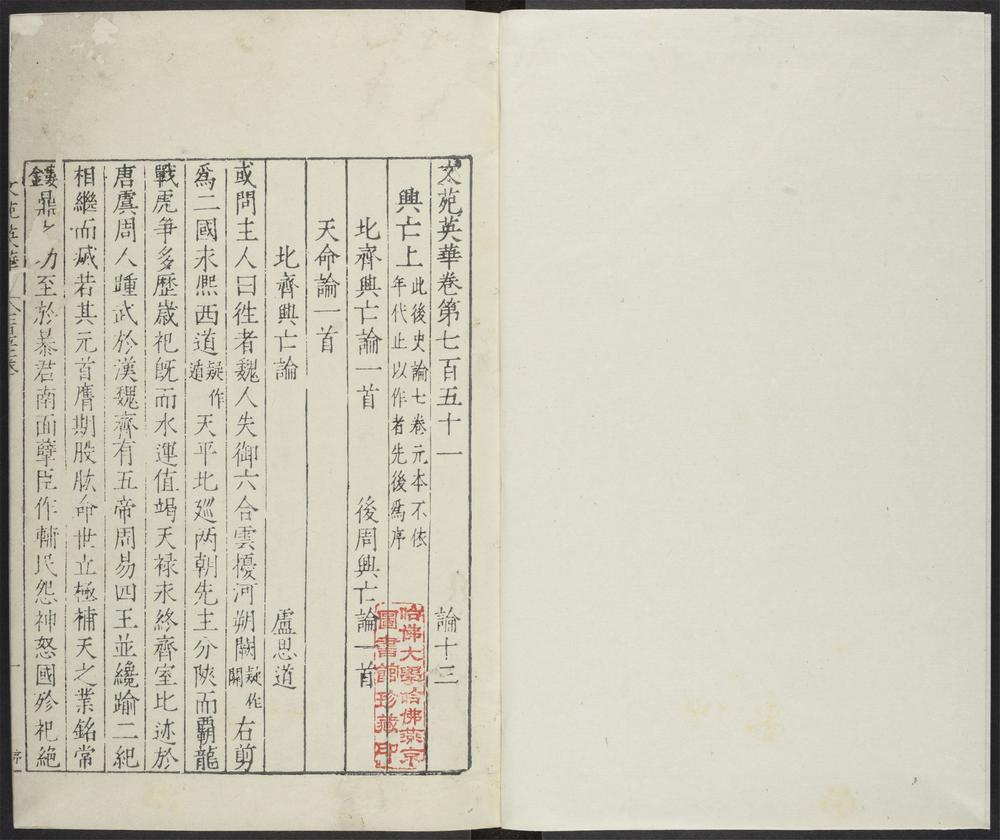 文苑英華卷第七百五十一 論十三
興亡上 此後史論七卷元本不依年代止以作者先後爲序
北齊興亡論一首 後周興亡論一首
天命論一首
北齊興亡論 盧思道
或問主人曰徃者魏人失御六合雲擾河朔闕疑作關右剪
爲二國永熈西道疑作遁天平北廵两朝先主分陜而霸龍
戰虎爭多歷歲祀旣而水運值竭天禄永終齊室比迹於
唐虞周人踵武於漢魏齊有五帝周易四王並纔踰二紀
相繼而㓕若其元首膺期股肱命世立極補天之業銘常
鏤鼎之功至於暴君南面孽臣作輔民怨神怒國殄祀絶
文苑英華
一
哈佛大學哈佛燕京
圖書館珍藏印